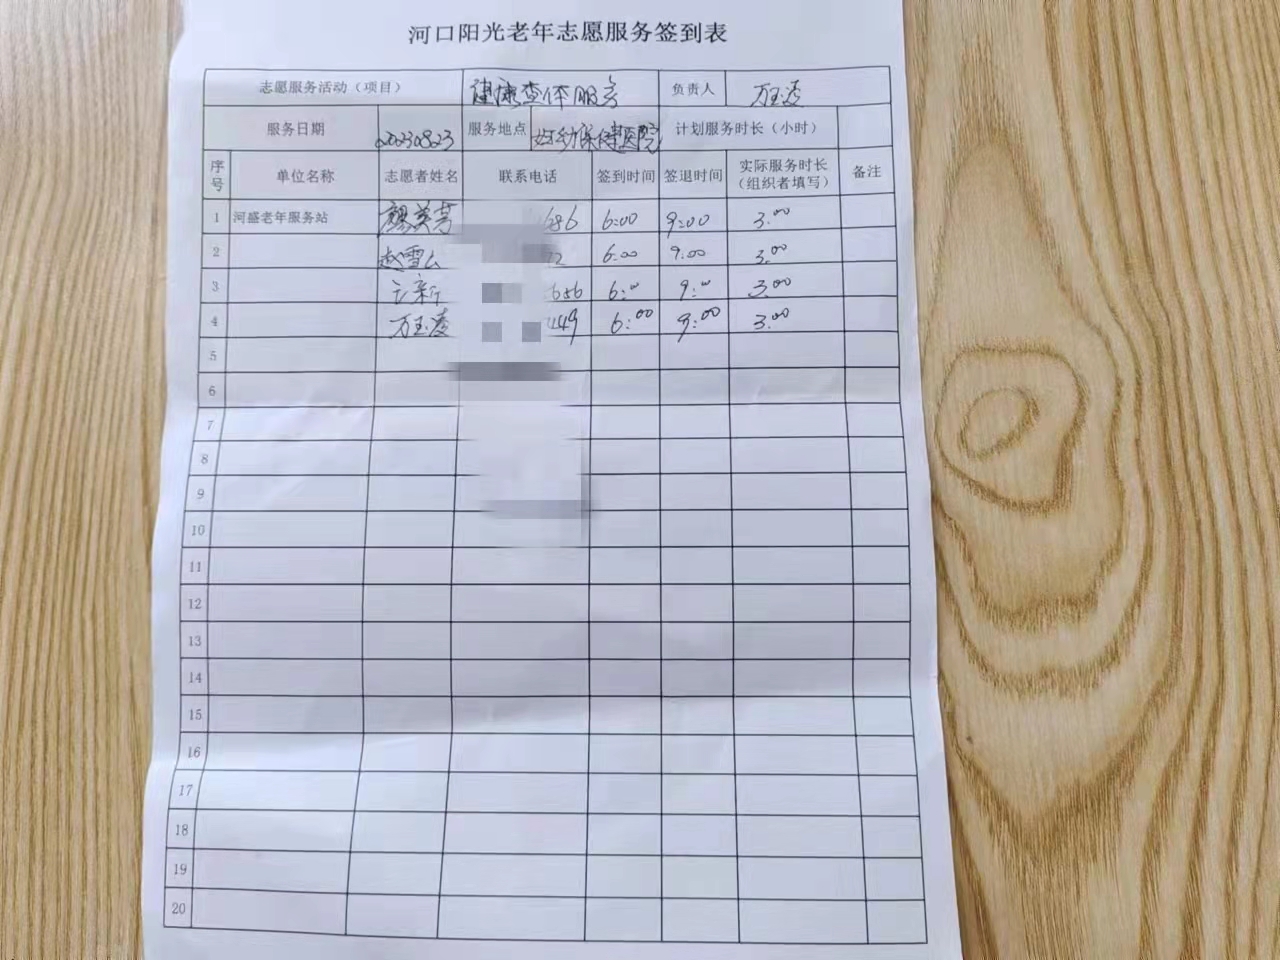 河口阳光老年志愿服务签到表
志愿服务活动（项目） 健康查体服务 负责人 万玉凌
服务日期 20230823 服务地点 妇幼保健医院 计划服务时长（小时）
序号 单位名称 志愿者姓名 联系电话 签到时间 签退时间 实际服务时长（组织者填写） 备注
1 河盛老年服务站 英芳 686 6:00 9:00 3.00
2 赵雪 72 6:00 9:00 3.00
3 656 6:00 9:00 3.00
4 万玉凌 449 6:00 9:00 3.00
5
6
7
8
9
10
11
12
13
14
15
16
17
18
19
20